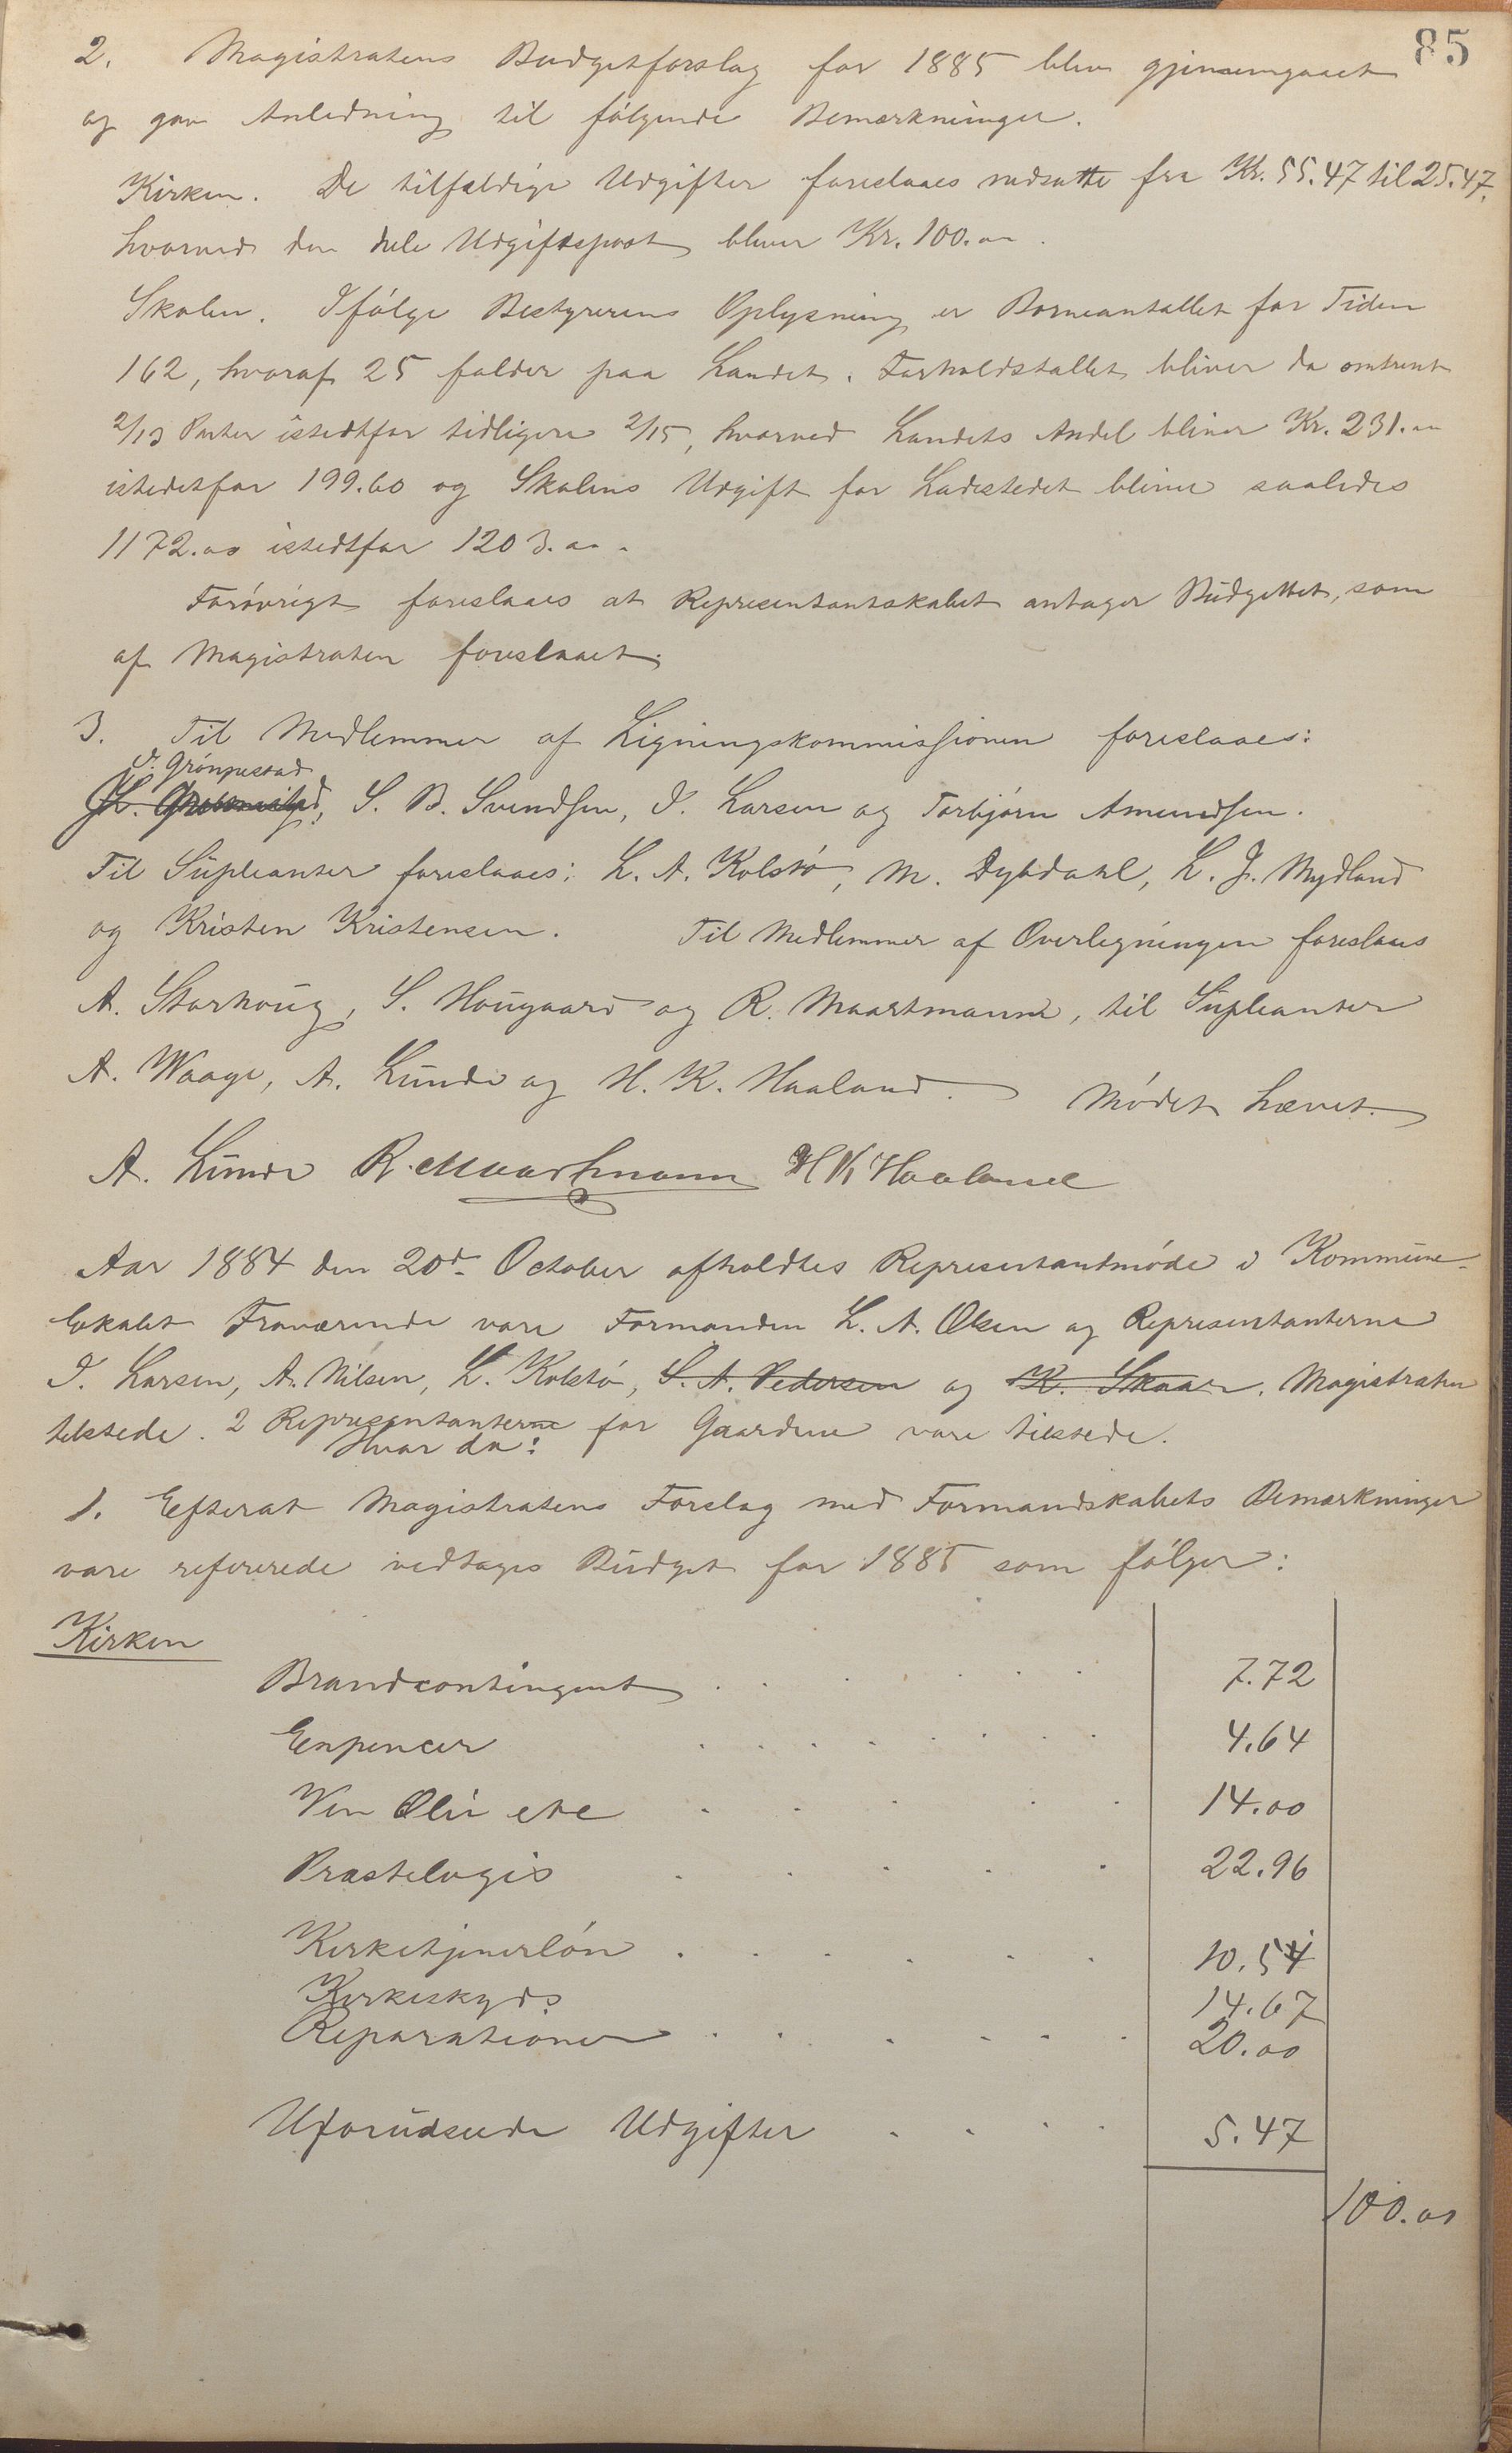 85
2. Magistratens Budgetforslag for 1885 blev gjennemgaaet
og gav Anledning til følgende Bemærkninger.
Kirken. De tilfældige Udgifter foreslaaes nedsatte fra Kr. 55.47 til 25.47,
hvorved den hele Udgiftspost bliver Kr. 100.00.
Skolen. Ifølge Bestyrerens Oplysning er Børneantallet for Tiden
162, hvoraf 25 falder paa Landet. Forholdstallet bliver da omtrent
2/13 Parter istedtfor tidligere 2/15, hvorved Landets Andel bliver Kr. 231.00
istedetfor 199.60 og Skolens Udgift for Ladestedet bliver saaledes
1172.00 istedtfor 1203.00.
Forøvrigt foreslaaes at Representantskabet antager Budgettet, som
af Magistraten foreslaaet.
3. Til Medlemmer af Ligningskommissionen foreslaaes:
J. Grønnestad
S. B. Svendsen, I. Larsen og Torbjørn Amundsen.
Til Supleanter foreslaaes: L. A. Kolstø, M. Dybdahl, L. J. Mydland
og Kristen Kristensen. Til Medlemmer af Overligningen foreslaaes
A. Storhoug, S. Hougaard og R. Maartmann, til Supleanter
A. Waage, A. Lunde og H. K. Haaland. Mødet hævet.
A. Lunde R. Maartmann H K Haaland
Aar 1884 den 20de October afholdtes Representantmøde i Kommune-
lokalet Fraværende vare Formanden L. A. Olsen og Representanterne
I. Larsen, A. Nilsen, L. Kolstø, S. A. Pedersen og K. Skaar. Magistraten
tilstede. 2 Representanterne for Gaardene vare tilstede.
Hvor da:
1. Efterat Magistratens Forslag med Formandskabets Bemærkninger
vare refererede vedtages Budget for 1885 som følger:
Kirken
Brandcontingent 7.72
Expencer 4.64
Vin Olie etc 14.00
Præstelogis 22.96
Kirketjenerløn 10.54
Kirkeskyds 14.67
Reparationer 20.00
Uforudseede Udgifter 5.47
100.00